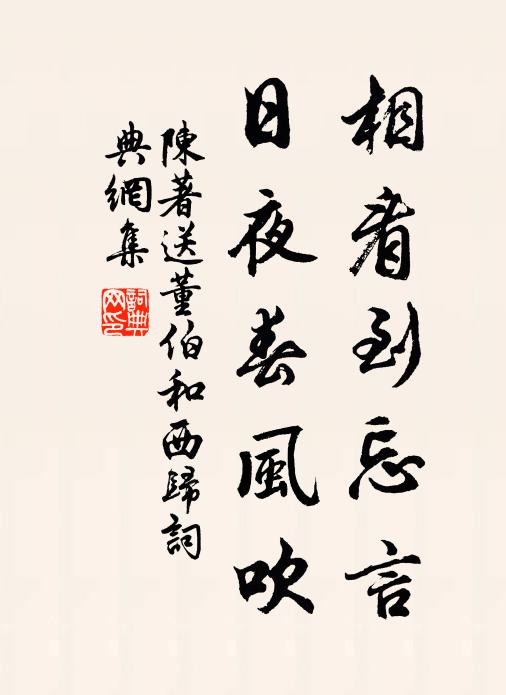 相看到忘言
日夜春風吹
陳著送董伯和西歸詞
典網集
詞典
网印